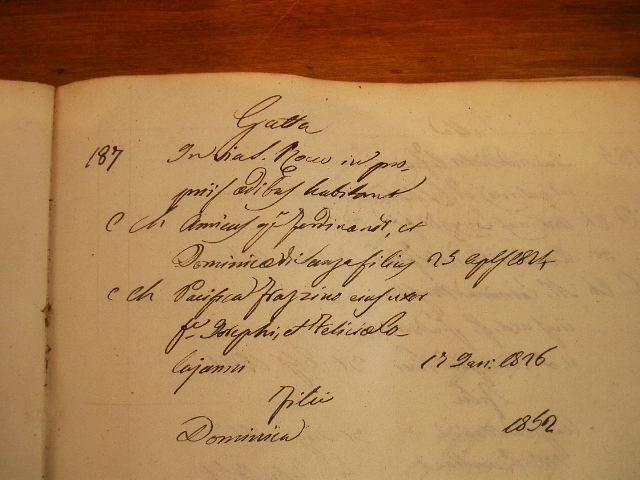 Gatta
187 In via S. Roco in pro-
priis ædibus habitant
C Ch Amicus qm Ferdinandi, et
Dominicæ di Lanza filius 25 1824
C Ch Pacifica Frazzino ejus uxor
f. Josephi, et Feliciæ Lo-
Cajanni 17 Jan: 1826
Filii
Dominica 1852